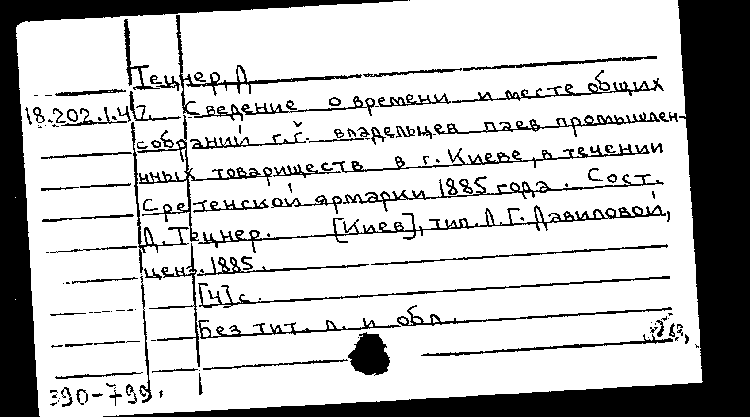 Тецнер, Д.
18.202.1.47. Сведение о времени и месте общих
собраний г.г. владельцев паев промышлен-
нных товариществ в г. Киеве, в течении
Сретенской ярмарки 1885 года. Сост.
Д. Тецнер. [Киев], тип. Л. Г. Давиловой,
ценз. 1885.
[4] с.
Без тит. л. и обл.
390-799.